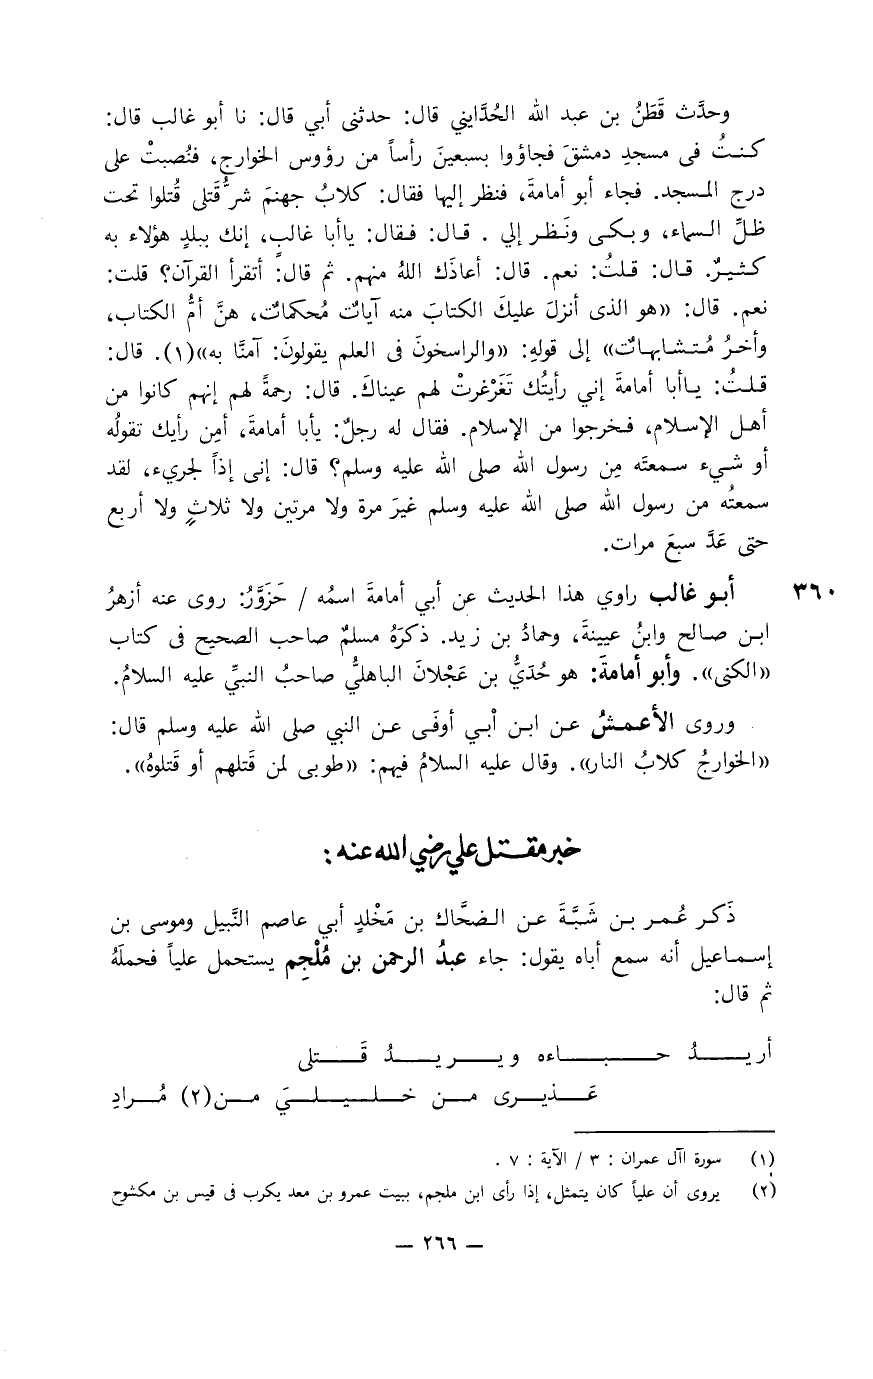 وحدَّث قَطَنُ بن عبد الله الحُدَّايني قال: حدثنى أبي قال: نا أبو غالب قال:
كنتُ فى مسجدِ دمشقَ فجاؤوا بسبعينَ رأساً من رؤوس الخوارج، فنُصبتْ على
درج المسجد. فجاء أبو أمامةَ، فنظر إليها فقال: كلابُ جهنمَ شرُّ قَتلى قُتلوا تحت
ظلِّ السماء، وبكى ونَظر إلي . قال: فقال: ياأبا غالبٍ، إنك ببلدٍ هؤلاء به
كثيرٌ. قال: قلتُ: نعم. قال: أعاذَك اللهُ منهم. ثم قال: أتقرأ القرآن؟ قلت:
نعم. قال: «هو الذى أنزلَ عليكَ الكتابَ منه آياتٌ مُحكماتٌ، هنَّ أمُّ الكتاب،
وأخرُ مُتشابهاتٌ» إلى قولهِ: «والراسخونَ فى العلم يقولونَ: آمنَّا به»(١). قال:
قلتُ: ياأبا أمامةَ إني رأيتُك تَغَرْغرتْ لهم عيناكَ. قال: رحمةً لهم إنهم كانوا من
أهل الإسلام، فخرجوا من الإسلام. فقال له رجلٌ: يأبا أمامةَ، أمِن رأيك تقولُه
أو شيء سمعتَه مِن رسول الله صلى الله عليه وسلم؟ قال: إنى إذاً لجريء، لقد
سمعتُه من رسول الله صلى الله عليه وسلم غيرَ مرة ولا مرتين ولا ثلاثٍ ولا أربع
حتى عَدَّ سبعَ مرات.
٣٦٠ أبو غالب راوي هذا الحديث عن أبي أمامةَ اسمُه / حَزَوَّرُ: روى عنه أزهرُ
ابن صالح وابنُ عيينةَ، وحمادُ بن زيد. ذكرَهُ مسلمٌ صاحب الصحيح فى كتاب
«الكنى». وأبو أمامةَ: هو حُدَيُّ بن عَجْلانَ الباهليُّ صاحبُ النبيِّ عليه السلامُ.
وروى الأعمشُ عن ابن أبي أوفَى عن النبي صلى الله عليه وسلم قال:
«الخوارجُ كلابُ النار». وقال عليه السلامُ فيهم: «طوبى لمن قَتلهم أو قَتلوهُ».
خبر مقتل علي رضي الله عنه :
ذَكر عُمر بن شَبَّةَ عن الضحَّاك بن مَخْلدٍ أبي عاصم النَّبيل وموسى بن
إسماعيل أنه سمع أباه يقول: جاء عبدُ الرحمن بن مُلْجِم يستحمل علياً فحملَهُ
ثم قال:
أريدُ حباءه ويريدُ قَتلى
عَذيرى من خليليَ من(٢) مُرادِ
(١) سورة اآل عمران : ٣ / الآية : ٧ .
(٢) يروى أن علياً كان يتمثل، إذا رأى ابن ملجم، ببيت عمرو بن معد يكرب فى قيس بن مكشوح
— ٢٦٦ —